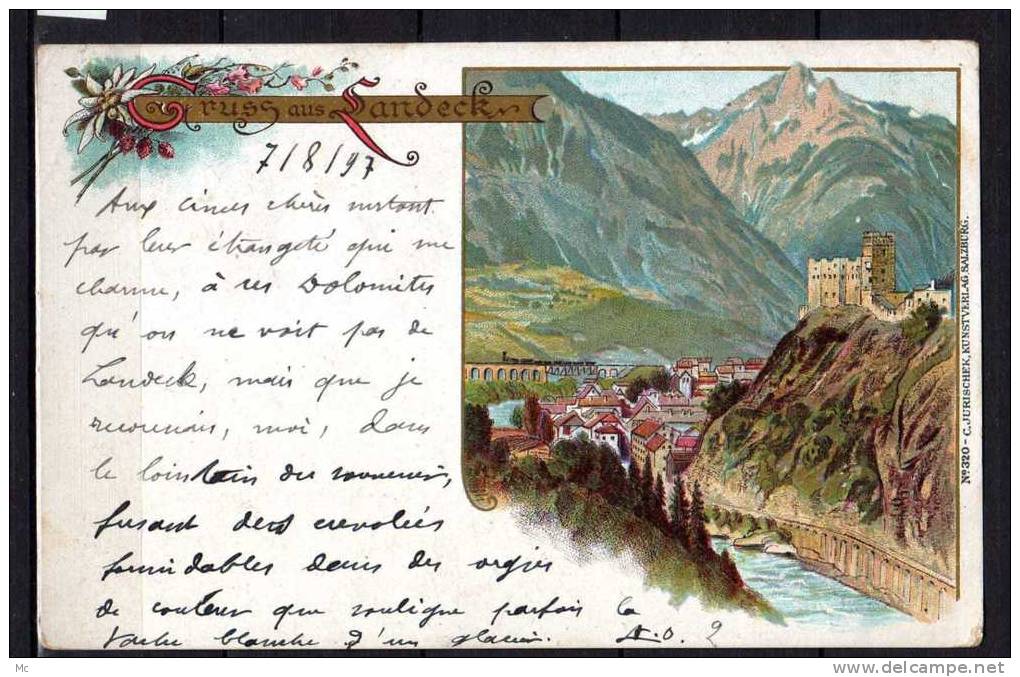 Gruss aus Landeck
7/8/97
Aux cimes chères surtout
par leur étrangeté qui me
charme, à ces Dolomites
qu'on ne voit pas de
Landeck, mais que je
reconnais, moi, dans
le lointain du souvenir,
fusant des
formidables dans des orgies
de couleur que souligne parfois la
tache blanche d'un glacier.
No 320 - C. JURISCHEK, KUNSTVERLAG SALZBURG.
Mc
www.delcampe.net